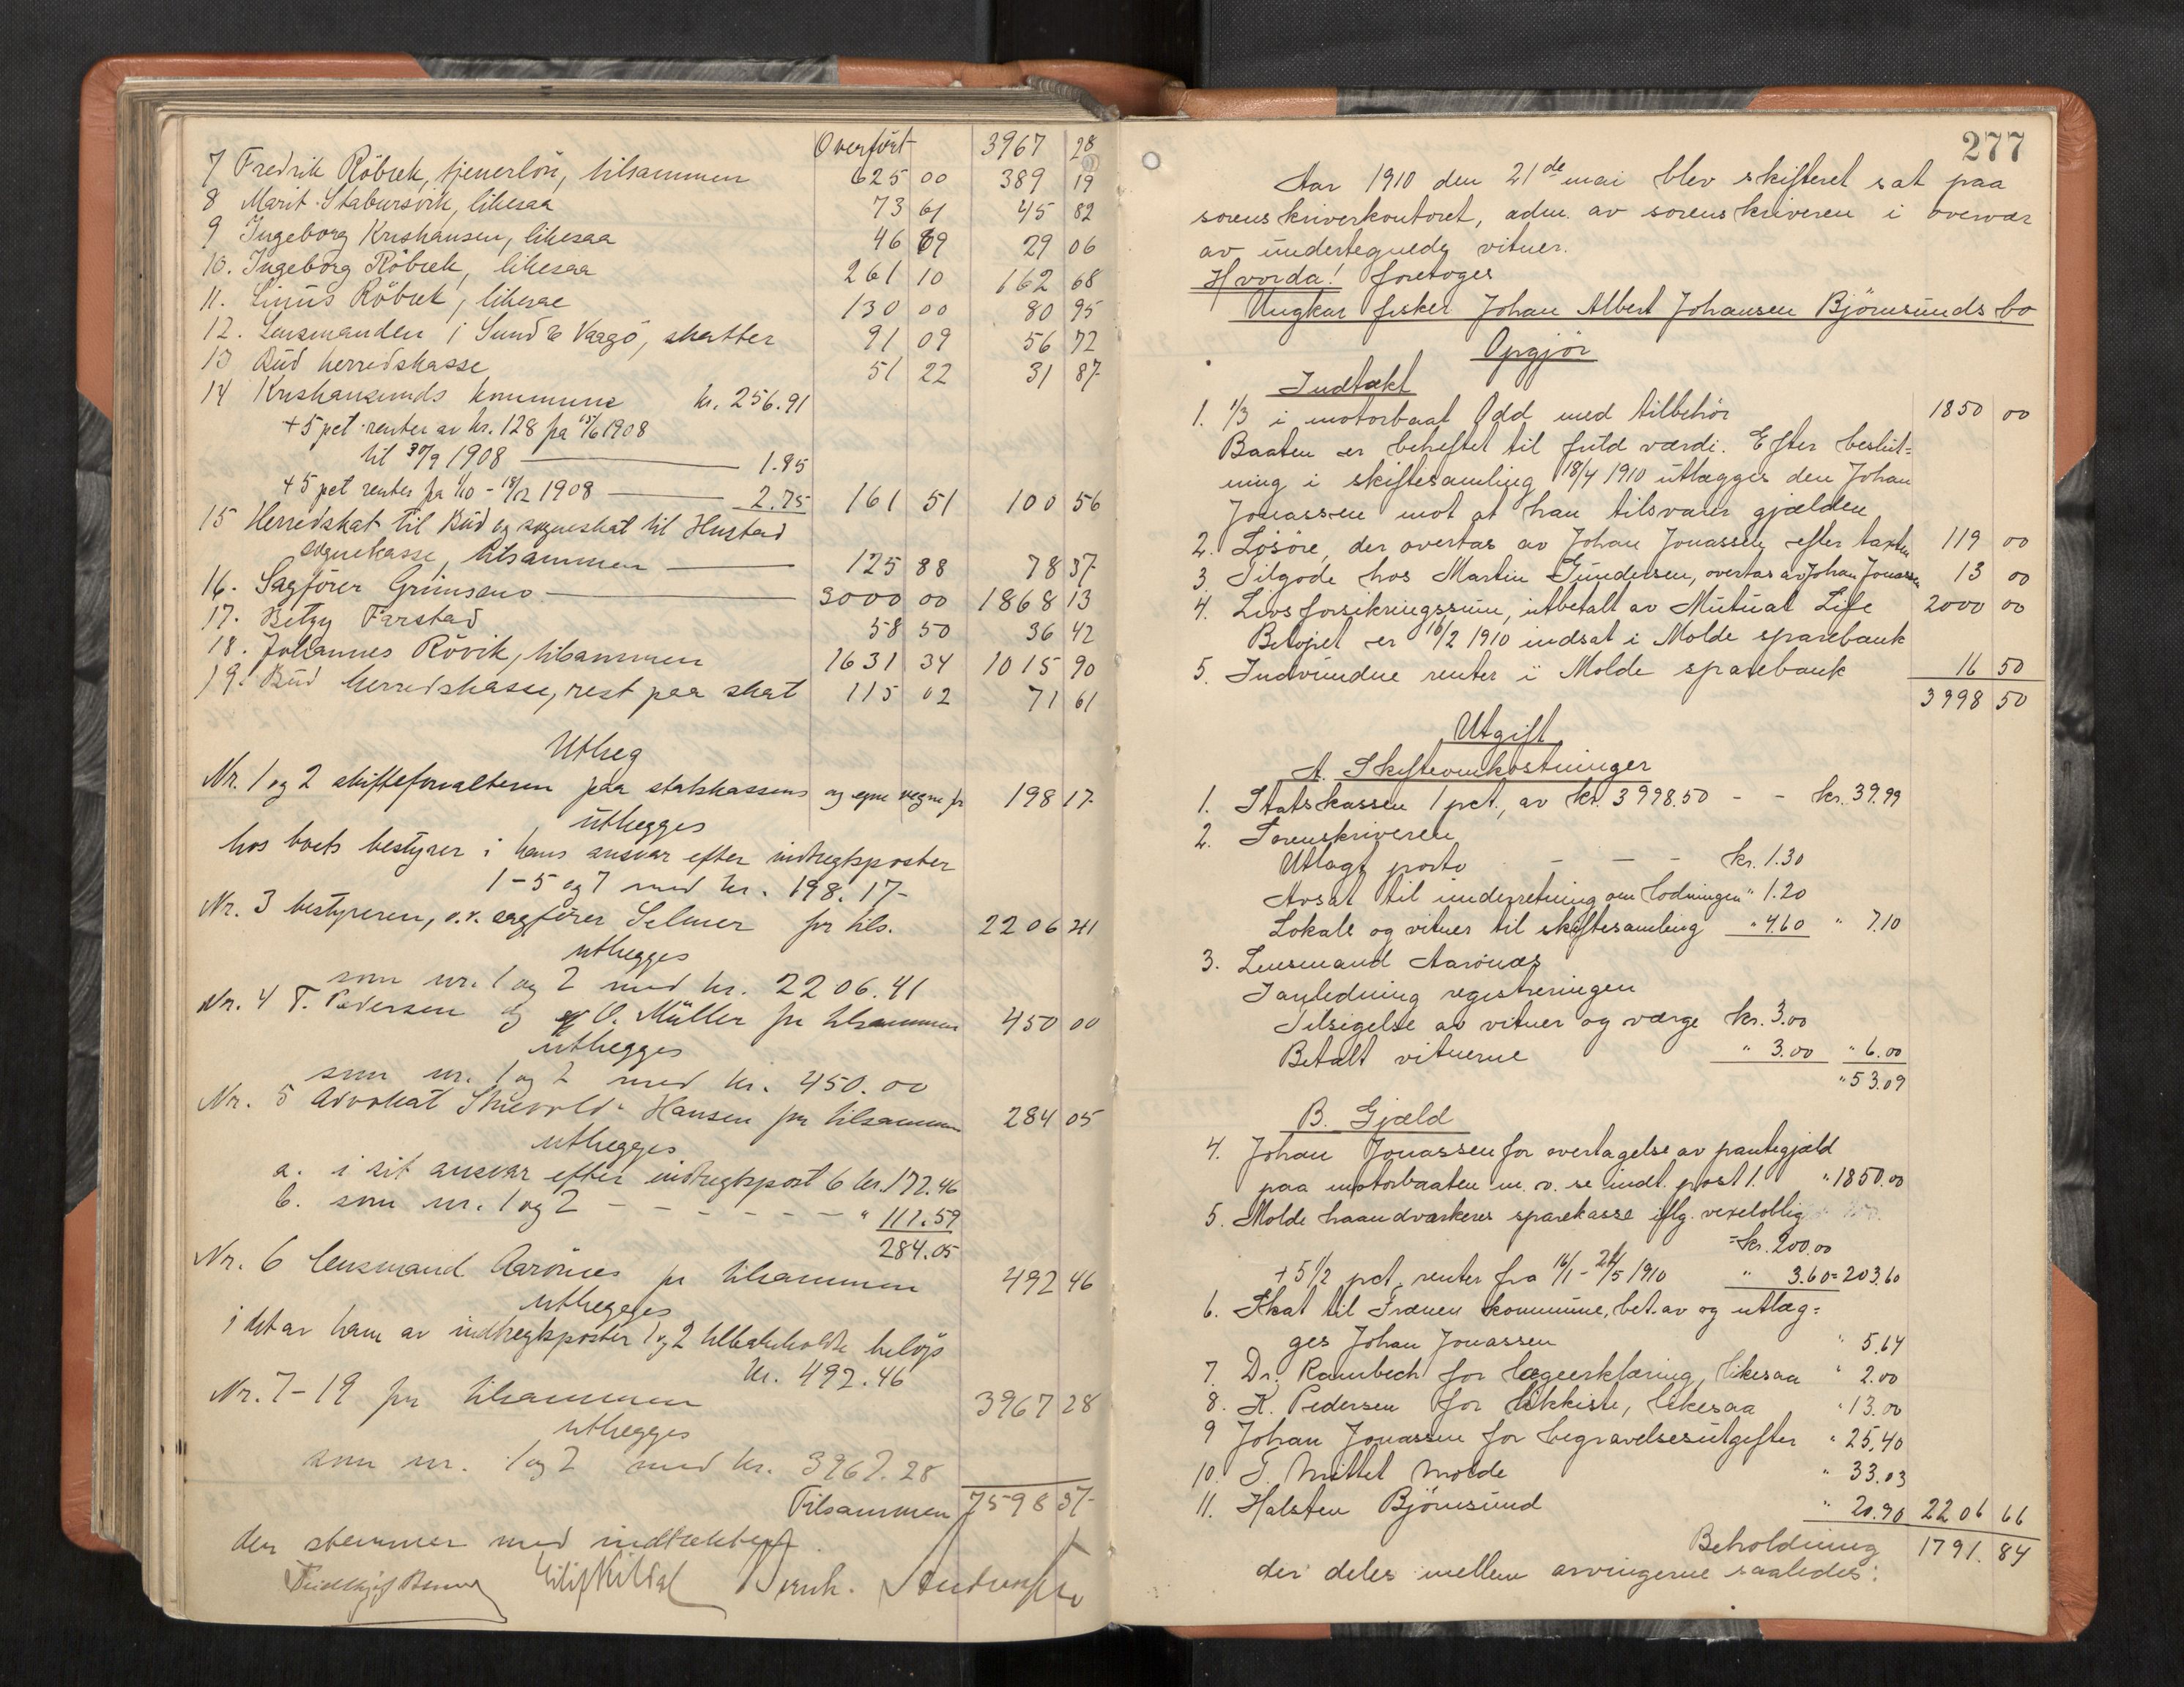 Overført 3967 28
7 Fredrik Röbæk, tjenerlön, tilsammen 625 00 389 19
8 Marit Stabursvik, likesaa 73 61 45 82
9 Ingeborg Kristiansen, likesaa 46 69 29 06
10. Ingeborg Röbæk, likesaa 261 10 162 68
11. Linus Röbæk, likesaa 130 00 80 95
12. Lensmanden i Sund & Vaagö, skatter 91 09 56 72
13 Bud herredskasse 51 22 31 87
14 Kristiansunds kommune kr. 256.91
+ 5 pct. renter av kr. 128 fra 15/6 1908
til 30/9 1908 — 1.85
+ 5 pct renter fra 1/10 - 18/12 1908 — 2.75 161 51 100 56
15 Herredskat til Bud og sogneskat til Hustad
sognekasse, tilsammen — 125 88 78 37
16. Sagförer Grimseno — 3000 00 1868 13
17. Betzy Farstad 58 50 36 42
18. Johannes Rövik, tilsammen 1631 34 1015 90
19. Bud herredskasse, rest paa skat 115 02 71 61
Utlæg
Nr. 1 og 2 skifteforvalteren paa statskassens og egne vegne for 198 17
utlægges
hos boets bestyrer i hans ansvar efter indtægtsposter
1-5 og 7 med kr. 198.17
Nr. 3 bestyreren, o.r. sagförer Selmer for tils. 2206 41
utlægges
som nr. 1 og 2 med kr. 2206.41
Nr. 4 T. Pedersen og O. Müller for tilsammen 450 00
utlægges
som nr. 1 og 2 med kr. 450.00
Nr. 5 Advokat Hansen for tilsammen 284 05
utlægges
a. i sit ansvar efter indtægtspost 6 kr. 172.46
b. som nr. 1 og 2 - - - - - - " 111.59
284.05
Nr. 6 lensmand Aarönes for tilsammen 492 46
utlægges
i det av ham av indtægtsposter 1 og 2 tilbakeholdte belöp
kr. 492.46
Nr. 7-19 for tilsammen 3967 28
utlægges
som nr. 1 og 2 med kr. 3967.28
Tilsammen 7598 37
der stemmer med indtækten.
Bernh.
277
Aar 1910 den 21de mai blev skifteret sat paa
sorenskriverkontoret, adm. av sorenskriveren i overvær
av undertegnede vitner.
Hvorda! foretoges
Ungkar fisker Johan Albert Johansen Björnsunds bo
Opgjör
Indtækt
1. 1/3 i motorbaat Odd med tilbehör 1850 00
Baaten er beheftet til fuld værdi. Efter beslut=
ning i skiftesamling 18/4 1910 utlægges den Johan
Jonassen mot at han tilsvarer gjælden
2. Lösöre, der overtas av Johan Jonassen efter taxten 119 00
3 Tilgode hos Martin Gundersen, overtas av Johan Jonassen 13 00
4. Livsforsikringssum, utbetalt av Mutual Life 2000 00
Belöpet er 16/2 1910 indsat i Molde sparebank
5. Indvundne renter i Molde sparebank 16 50
3998 50
Utgift
A. Skifteomkostninger
1. Statskassen 1 pct., av kr. 3998.50 - - kr. 39.99
2. Sorenskriveren
Utlagt porto - - - kr. 1.30
Avsat til underretning om lodningen " 1.20
Lokale og vitner til skiftesamling " 4.60 " 7.10
3. Lensmand Aarönes
I anledning registreringen
Tilsigelse av vitner og værge kr. 3.00
Betalt vitnerne " 3.00 " 6.00
" 53.09
B. Gjæld
4. Johan Jonassen for overtagelse av pantegjæld
paa motorbaaten m. v. se indt. post 1. " 1850.00
5. Molde haandverkeres sparekasse iflg. vexeloblig
= kr. 200.00
+ 5 1/2 pct. renter fra 16/1 - 21/5 1910 " 3.60 = 203.60
6. Skat til Frænen kommune, bet. av og utlæg=
ges Johan Jonassen " 5.64
7. Dr. Rambech for lægeerklæring, likesaa " 2.00
8. K. Pedersen for likkiste, likesaa " 13.00
9 Johan Jonassen for begravelsesutgifter " 25.40
10. T. Mittet Molde " 33.03
11. Halsten Björnsund " 20.90 2206 66
Beholdning 1791. 84
der deles mellem arvingerne saaledes: